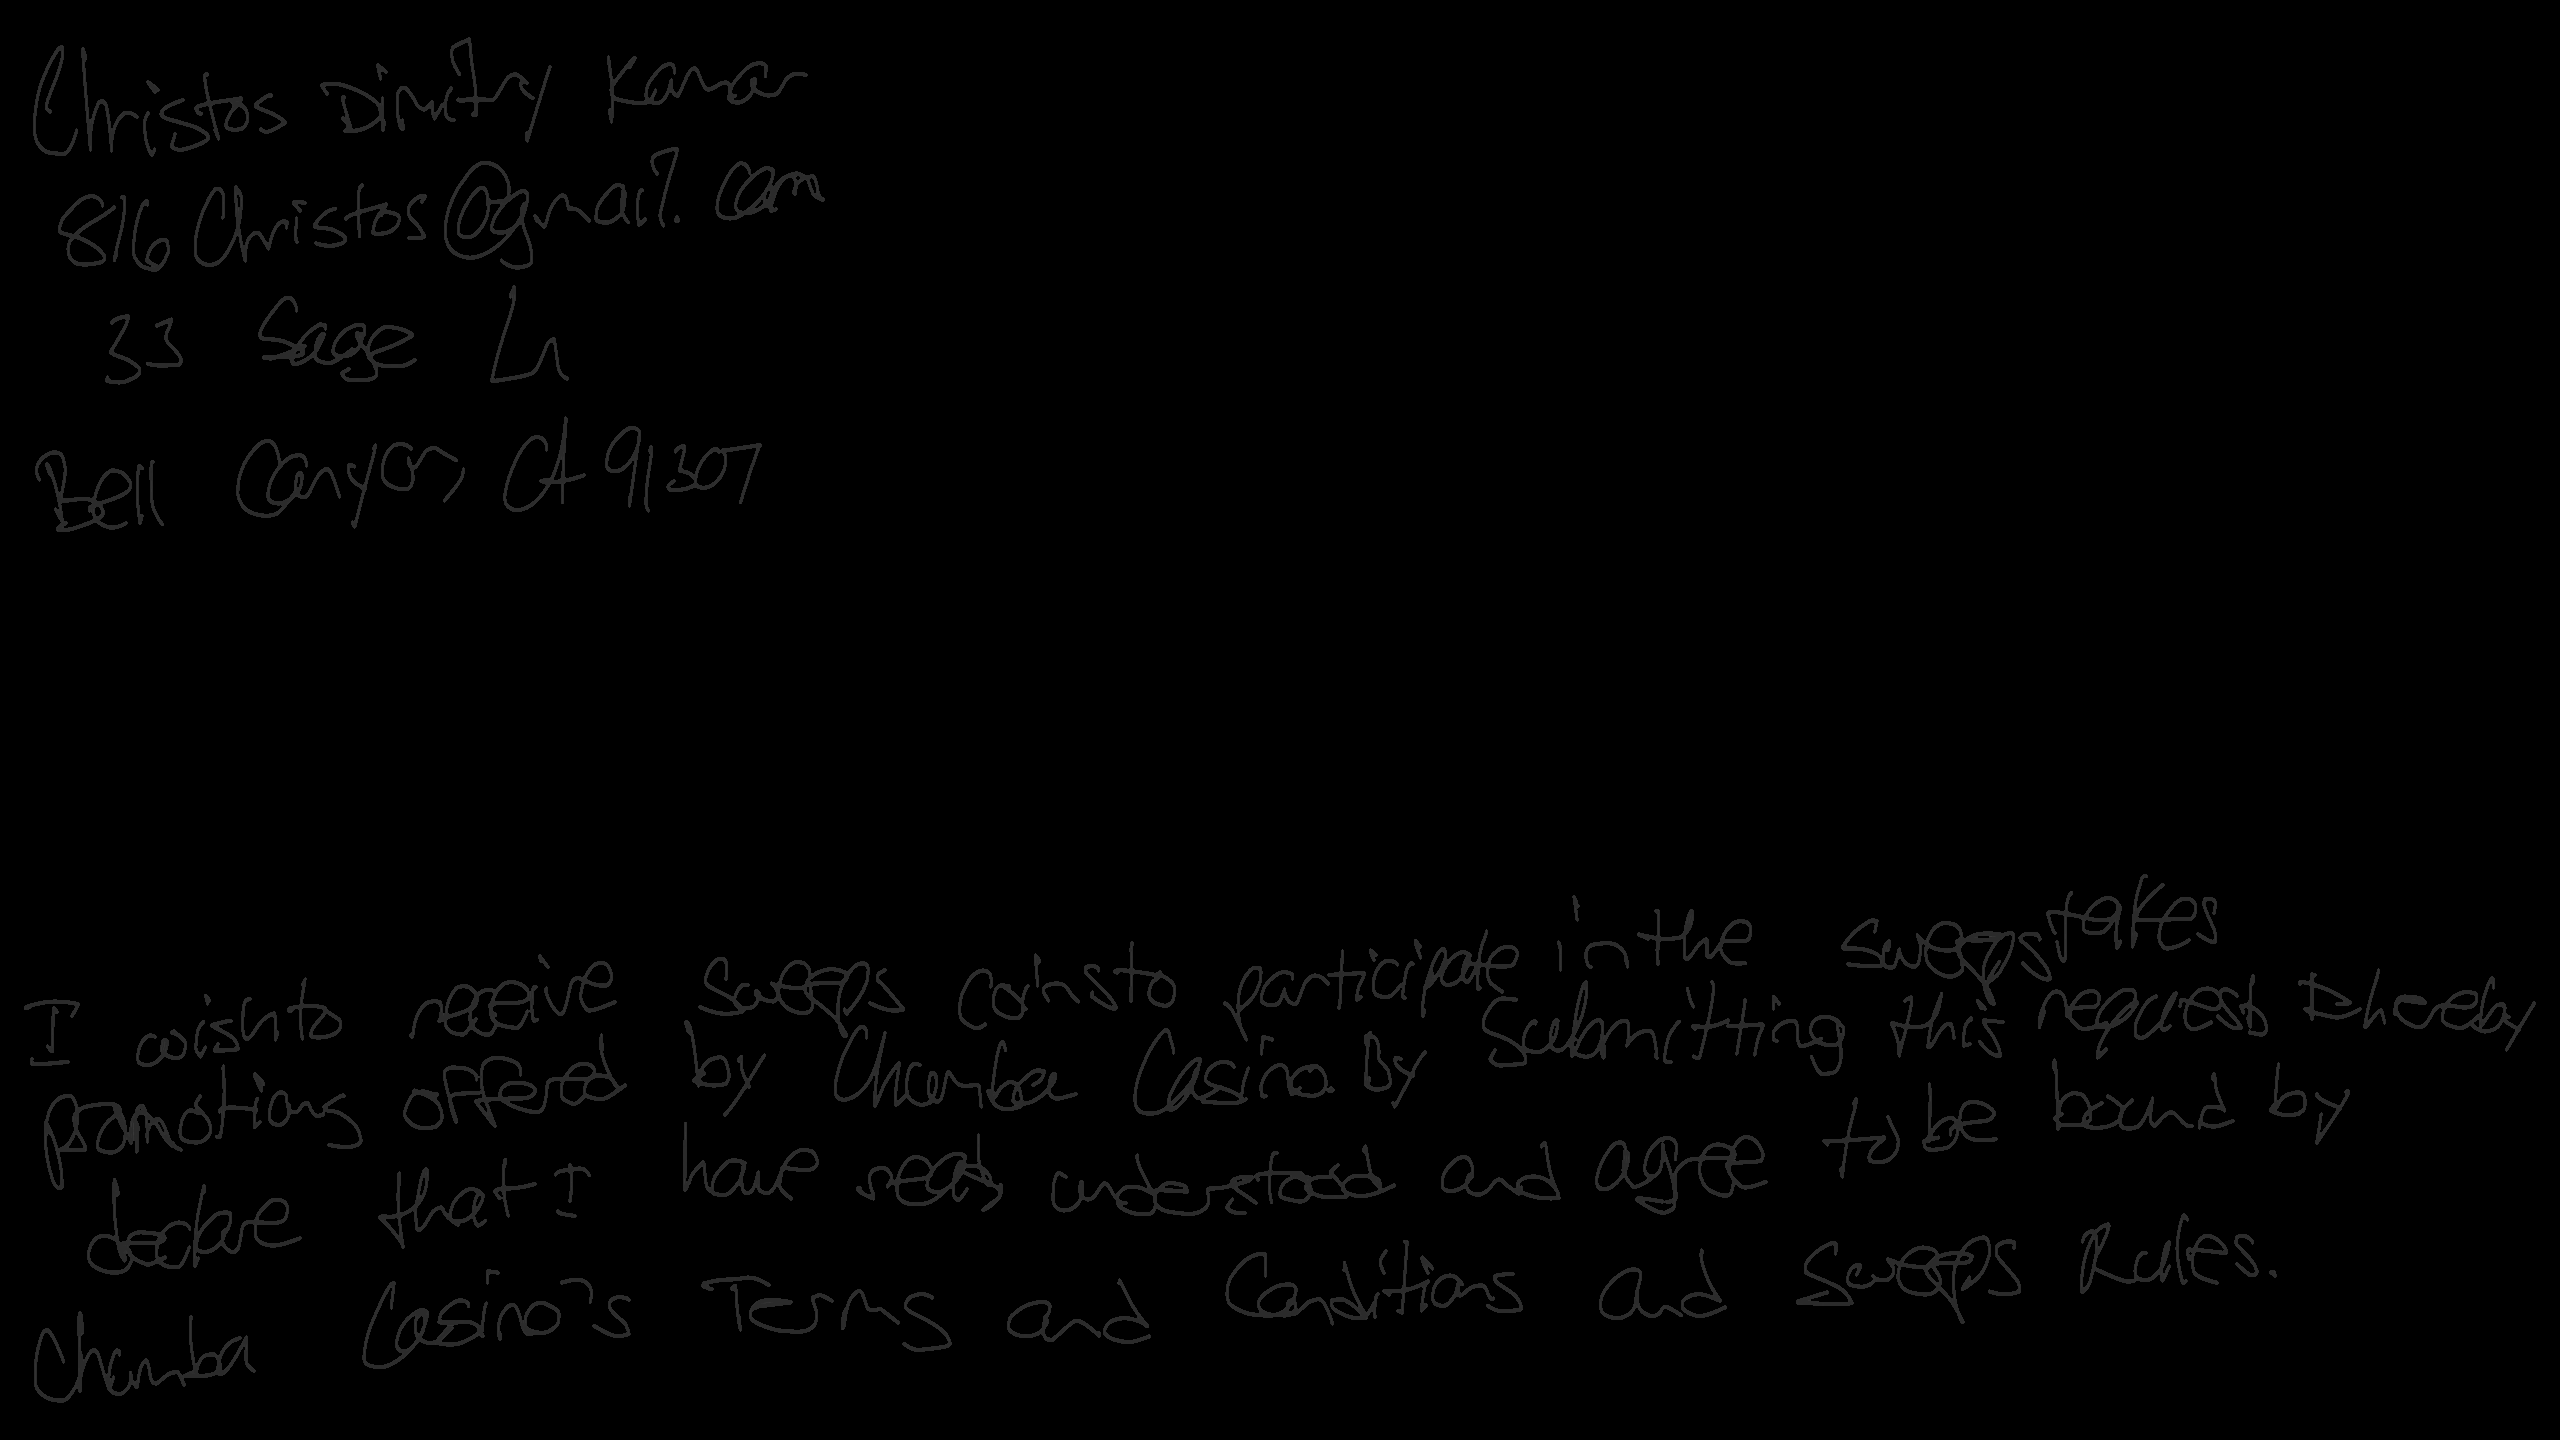 Christos Dimitry Kamar
816Christos@gmail.com
33 Sage Ln
Bell Canyon, CA 91307
I wish to receive sweeps coins to participate in the sweepstakes
promotions offered by Chumba Casino. By submitting this request I hereby
declare that I have read, understood and agree to be bound by
Chumba Casino's Terms and Conditions and Sweeps Rules.